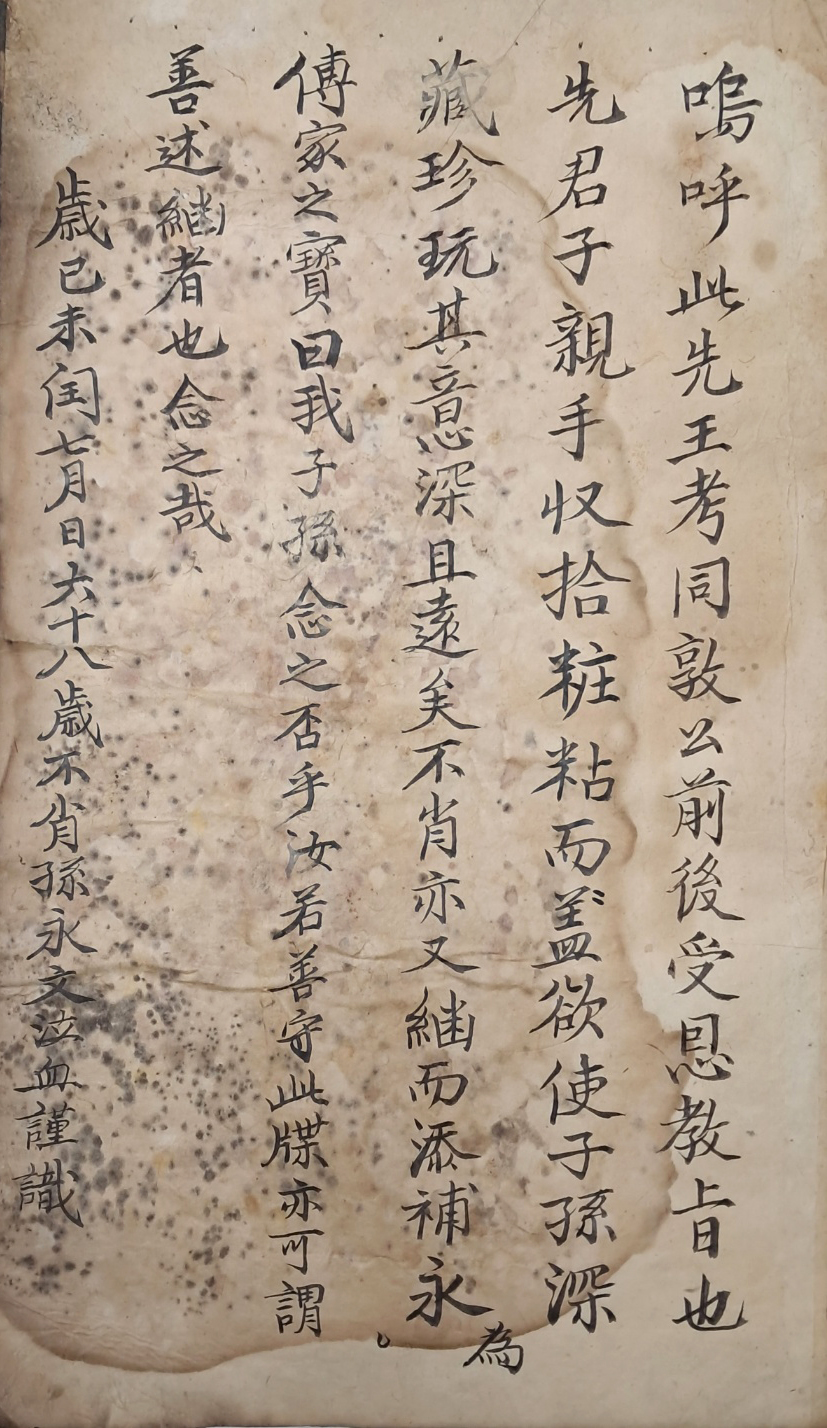 嗚呼此先王考同敦公前後受恩教旨也
先君子親手収拾粧粘而盖欲使子孫深
藏珍玩其意深且遠矣不肖亦又継而添補永為
傳家之寶曰我子孫念之否乎汝若善守此牒亦可謂
善述継者也念之哉
歲己未閏七月日六十八歲不肖孫永文泣血謹識